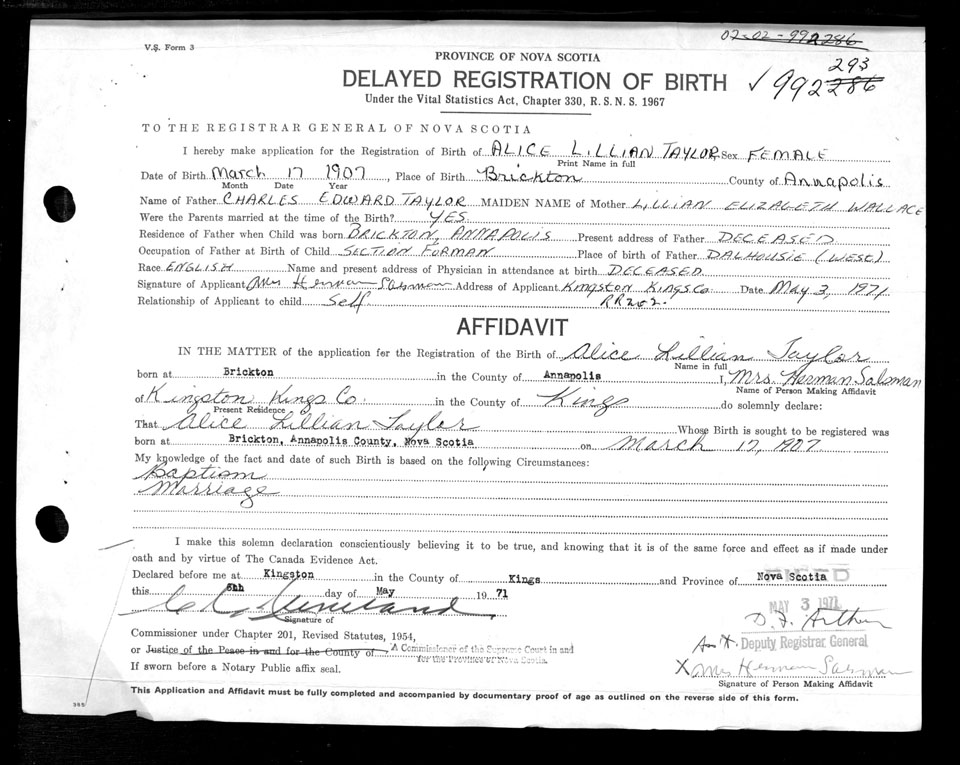 02-02-992286
V.S. Form 3
PROVINCE OF NOVA SCOTIA
293
DELAYED REGISTRATION OF BIRTH ✓ 992286
Under the Vital Statistics Act, Chapter 330, R.S.N.S. 1967
TO THE REGISTRAR GENERAL OF NOVA SCOTIA
I hereby make application for the Registration of Birth of ALICE LILLIAN TAYLOR Sex FEMALE
Print Name in full
Date of Birth March 17 1907, Place of Birth Brickton County of Annapolis
Month Date Year
Name of Father CHARLES EDWARD TAYLOR MAIDEN NAME of Mother LILLIAN ELIZABETH WALLACE
Were the Parents married at the time of the Birth? YES
Residence of Father when Child was born BRICKTON, ANNAPOLIS Present address of Father DECEASED
Occupation of Father at Birth of Child SECTION FORMAN Place of birth of Father DALHOUSIE (WEST)
Race ENGLISH Name and present address of Physician in attendance at birth DECEASED
Signature of Applicant Mrs Herman Salsman Address of Applicant Kingston Kings Co Date May 3, 1971
Relationship of Applicant to child Self RR
AFFIDAVIT
IN THE MATTER of the application for the Registration of the Birth of Alice Lillian Taylor
Name in full
born at Brickton in the County of Annapolis I, Mrs. Herman Salsman
Name of Person Making Affidavit
of Kingston Kings Co. in the County of Kings do solemnly declare:
Present Residence
That Alice Lillian Taylor Whose Birth is sought to be registered was
born at Brickton, Annapolis County, Nova Scotia on March 17, 1907.
My knowledge of the fact and date of such Birth is based on the following Circumstances:
Baptism
Marriage
I make this solemn declaration conscientiously believing it to be true, and knowing that it is of the same force and effect as if made under
oath and by virtue of The Canada Evidence Act.
Declared before me at Kingston in the County of Kings and Province of Nova Scotia
this day of May 1971
MAY 3 1971
Signature of
D. F. Arthur
Commissioner under Chapter 201, Revised Statutes, 1954,
Deputy Registrar General
or Justice of the Peace in and for the County of A Commissioner of the Supreme Court in and
for the Province of Nova Scotia.
If sworn before a Notary Public affix seal.
X Mrs Herman Salsman
Signature of Person Making Affidavit
This Application and Affidavit must be fully completed and accompanied by documentary proof of age as outlined on the reverse side of this form.
365